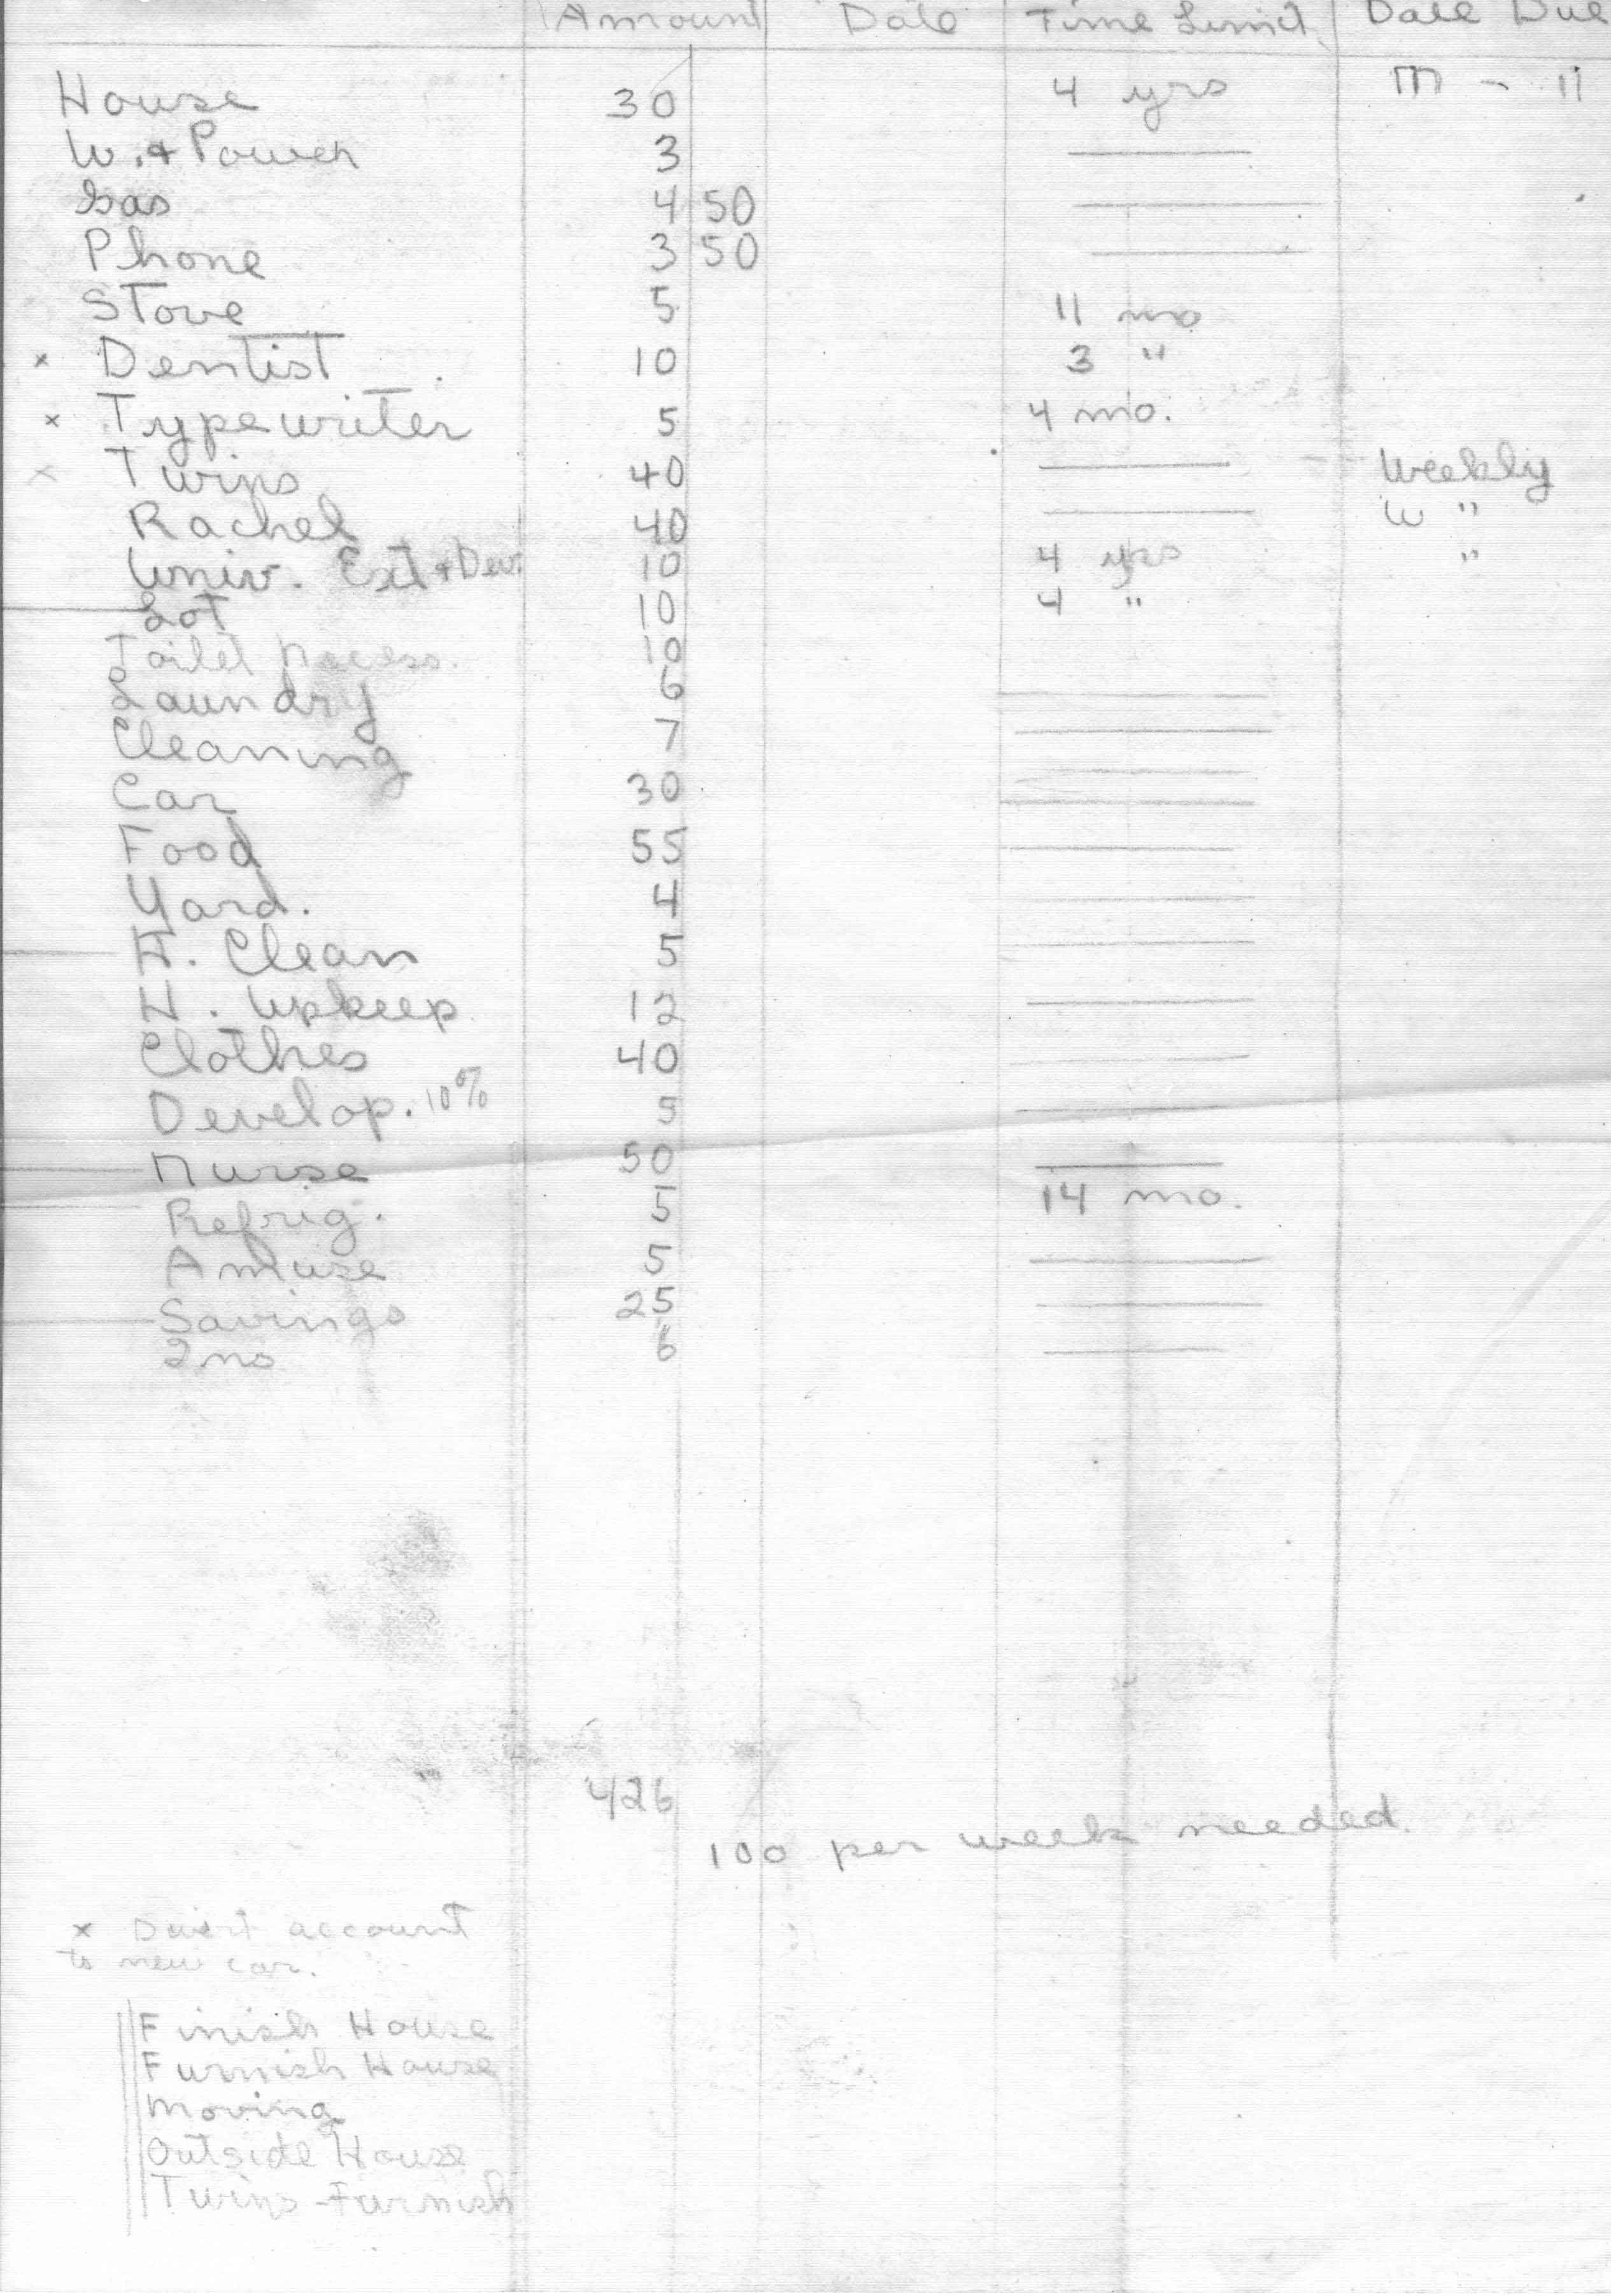 Amount Date Time Limit Date Due
House 30 4 yrs M - 11
W. + Power 3
Gas 4 50
Phone 3 50
Stove 5 11 mo
x Dentist 10 3 "
x Typewriter 5 4 mo.
x Twins 40 Weekly
Rachel 40 W "
Univ. Ext + Dev. 10 4 yrs "
Lot 10 4 "
Toilet Necess. 10
Laundry 6
Cleaning 7
Car 30
Food 55
Yard. 4
H. Clean 5
H. Upkeep 12
Clothes 40
Develop. 10% 5
Nurse 50
Refrig. 5 14 mo.
Amuse 5
Savings 25
Ins 6
426
100 per week needed.
x Divert account
to new car.
Finish House
Furnish House
Moving
Outside House
Twins - Furnish